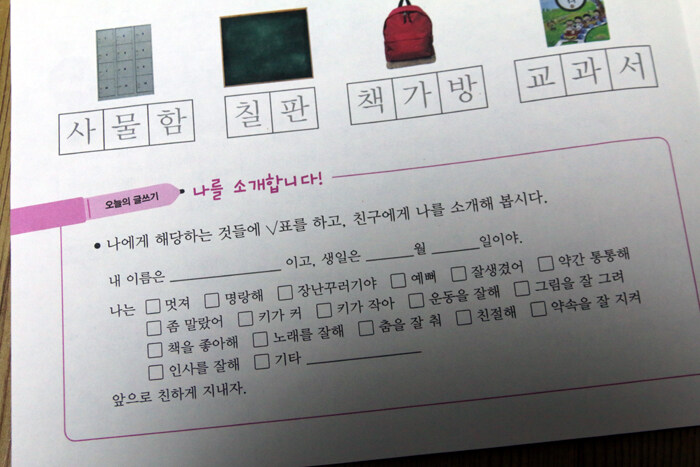 사물함 칠판 책가방 교과서
오늘의 글쓰기 나를 소개합니다!
• 나에게 해당하는 것들에 √표를 하고, 친구에게 나를 소개해 봅시다.
내 이름은 ____________ 이고, 생일은 _____월 _____일이야.
나는 □ 멋져 □ 명랑해 □ 장난꾸러기야 □ 예뻐 □ 잘생겼어 □ 약간 통통해
□ 좀 말랐어 □ 키가 커 □ 키가 작아 □ 운동을 잘해 □ 그림을 잘 그려
□ 책을 좋아해 □ 노래를 잘해 □ 춤을 잘 춰 □ 친절해 □ 약속을 잘 지켜
□ 인사를 잘해 □ 기타 ____________
앞으로 친하게 지내자.